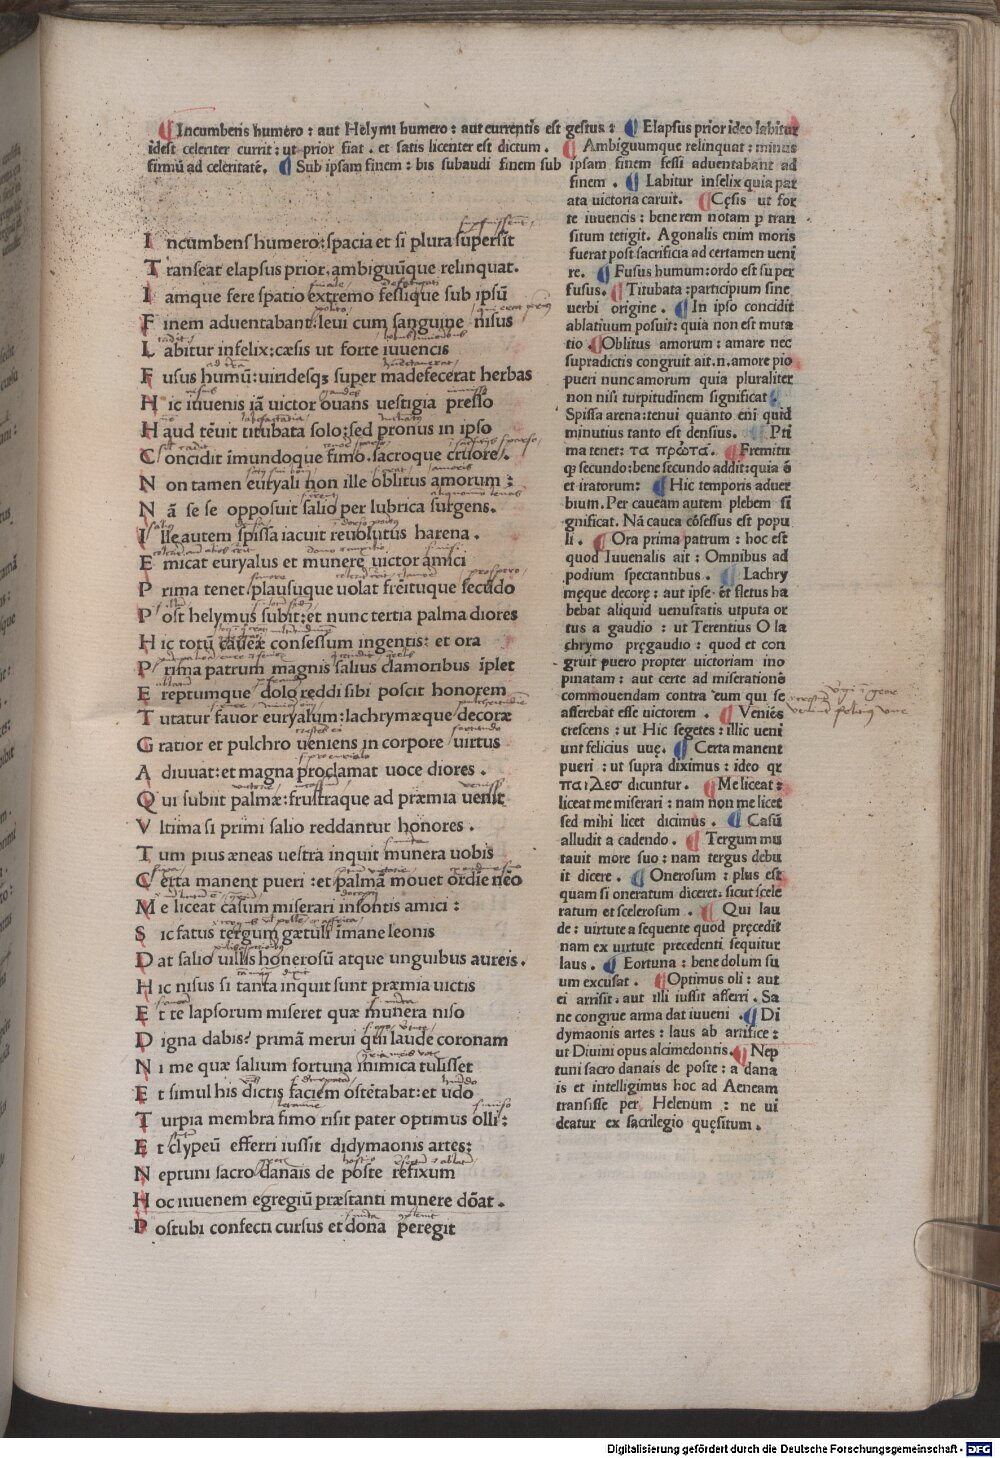 Incumbens humero : aut Helymi humero : aut currentis est gestus : Elapsus prior ideo labitur
idest celeriter currit : ut prior fiat . et satis licenter est dictum . Ambiguumque relinquat : minus
firmū ad celeritatē. Sub ipsam finem : bis subaudi finem sub ipsam finem fessi aduentabant ad
finem . Labitur infelix quia par
ata uictoria caruit. Cęsis ut for
te iuuencis : bene rem notam p tran
situm tetigit. Agonalis enim moris
fuerat post sacrificia ad certamen ueni
re. Fusus humum : ordo est super
fusus. Titubata : participium sine
uerbi origine . In ipso concidit
ablatiuum posuit : quia non est muta
tio . Oblitus amorum : amare nec
supradictis congruit ait .n. amore pio
pueri nunc amorum quia pluraliter
non nisi turpitudinem significat .
Spissa arena : tenui quanto eni quid
minutius tanto est densius . Pri
ma tenet : τα πρώτα . Fremitu
q secundo : bene secundo addit : quia ē
et iratorum : Hic temporis aduer
bium. Per caueam autem plebem si
gnificat. Nā cauea cōsessus est popu
li . Ora prima patrum : hoc est
quod Iuuenalis ait : Omnibus ad
podium spectantibus . Lachry
męque decorę : aut ipse . et fletus ha
bebat aliquid uenustatis utputa or
tus a gaudio : ut Terentius O la
chrymo pręgaudio : quod et con
gruit puero propter uictoriam ino
pinatam : aut certe ad miserationē
commouendam contra eum qui se
asserebat esse uictorem . Veniēs
crescens : ut Hic segetes : illic ueni
unt felicius uuę. Certa manent
pueri : ut supra diximus : ideo qr
παιδεσ dicuntur . Me liceat :
liceat me miserari : nam non me licet
sed mihi licet dicimus . Casū
alludit a cadendo . Tergum mu
tauit more suo : nam tergus debu
it dicere . Onerosum : plus est
quam si oneratum diceret : sicut scele
ratum et scelerosum . Qui lau
de : uirtute a sequente quod pręcedit
nam ex uirtute precedenti sequitur
laus . Eortuna : bene dolum su
um excusat . Optimus oli : aut
ei arrisit . aut illi iussit afferri . Sa
ne congrue arma dat iuueni . Di
dymaonis artes : laus ab artifice :
ut Diuini opus alcimedontis . Nep
tuni sacro danais de poste : a dana
is et intelligimus hoc ad Aeneam
transisse per Helenum : ne ui
deatur ex sacrilegio quęsitum .
I ncumbens humero : spacia et si plura supersit
T ranseat elapsus prior . ambiguūque relinquat.
I amque fere spatio extremo fessique sub ipsū
F inem aduentabant : leui cum sanguine nisus
L abitur infelix : cæsis ut forte iuuencis
F usus humū : uiridesqȝ super madefecerat herbas
H ic iuuenis iā uictor ouans uestigia presso
H aud tēuit titubata solo : sed pronus in ipso
C oncidit īmundoque fimo . sacroque cruore .
N on tamen euryali non ille oblitus amorum :
N ā se se opposuit salio per lubrica surgens .
I lle autem spissa iacuit reuolutus harena .
E micat euryalus et munere uictor amici
P rima tenet plausuque uolat frēituque secūdo
P ost helymus subit : et nunc tertia palma diores
H ic totū caueæ consessum ingentis : et ora
P rima patrum magnis salius clamoribus īplet
E reptumque dolo reddi sibi poscit honorem
T utatur fauor euryalum : lachrymæque decoræ
G ratior et pulchro ueniens in corpore uirtus
A diuuat : et magna proclamat uoce diores .
Q ui subiit palmæ : frustraque ad præmia uenit
V ltima si primi salio reddantur honores .
T um pius æneas uestra inquit munera uobis
C erta manent pueri : et palmā mouet ordie nēo
M e liceat casum miserari insontis amici :
S ic fatus tergum gætuli īmane leonis
D at salio uillis honerosū atque unguibus aureis .
H ic nisus si tanta inquit sunt præmia uictis
E t te lapsorum miseret quæ munera niso
D igna dabis ? primā merui qui laude coronam
N i me quæ salium fortuna inimica tulisset
E t simul his dictis faciem ostētabat : et udo
T urpia membra fimo risit pater optimus olli :
E t clypeū efferri iussit didymaonis artes :
N eptuni sacro danais de poste refixum
H oc iuuenem egregiū præstanti munere dōat .
P ostubi confecti cursus et dona peregit
Digitalisierung gefördert durch die Deutsche Forschungsgemeinschaft - DFG